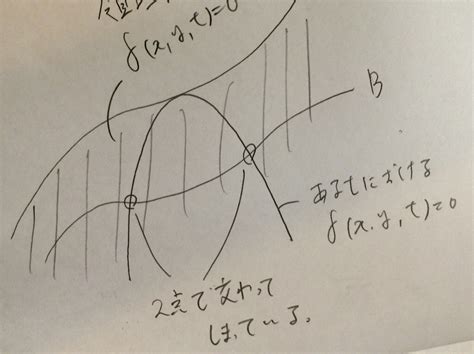 f(x,y,t)=0
B
あるtにおける
f(x.y,t)=0
2点で交わって
しまっている。